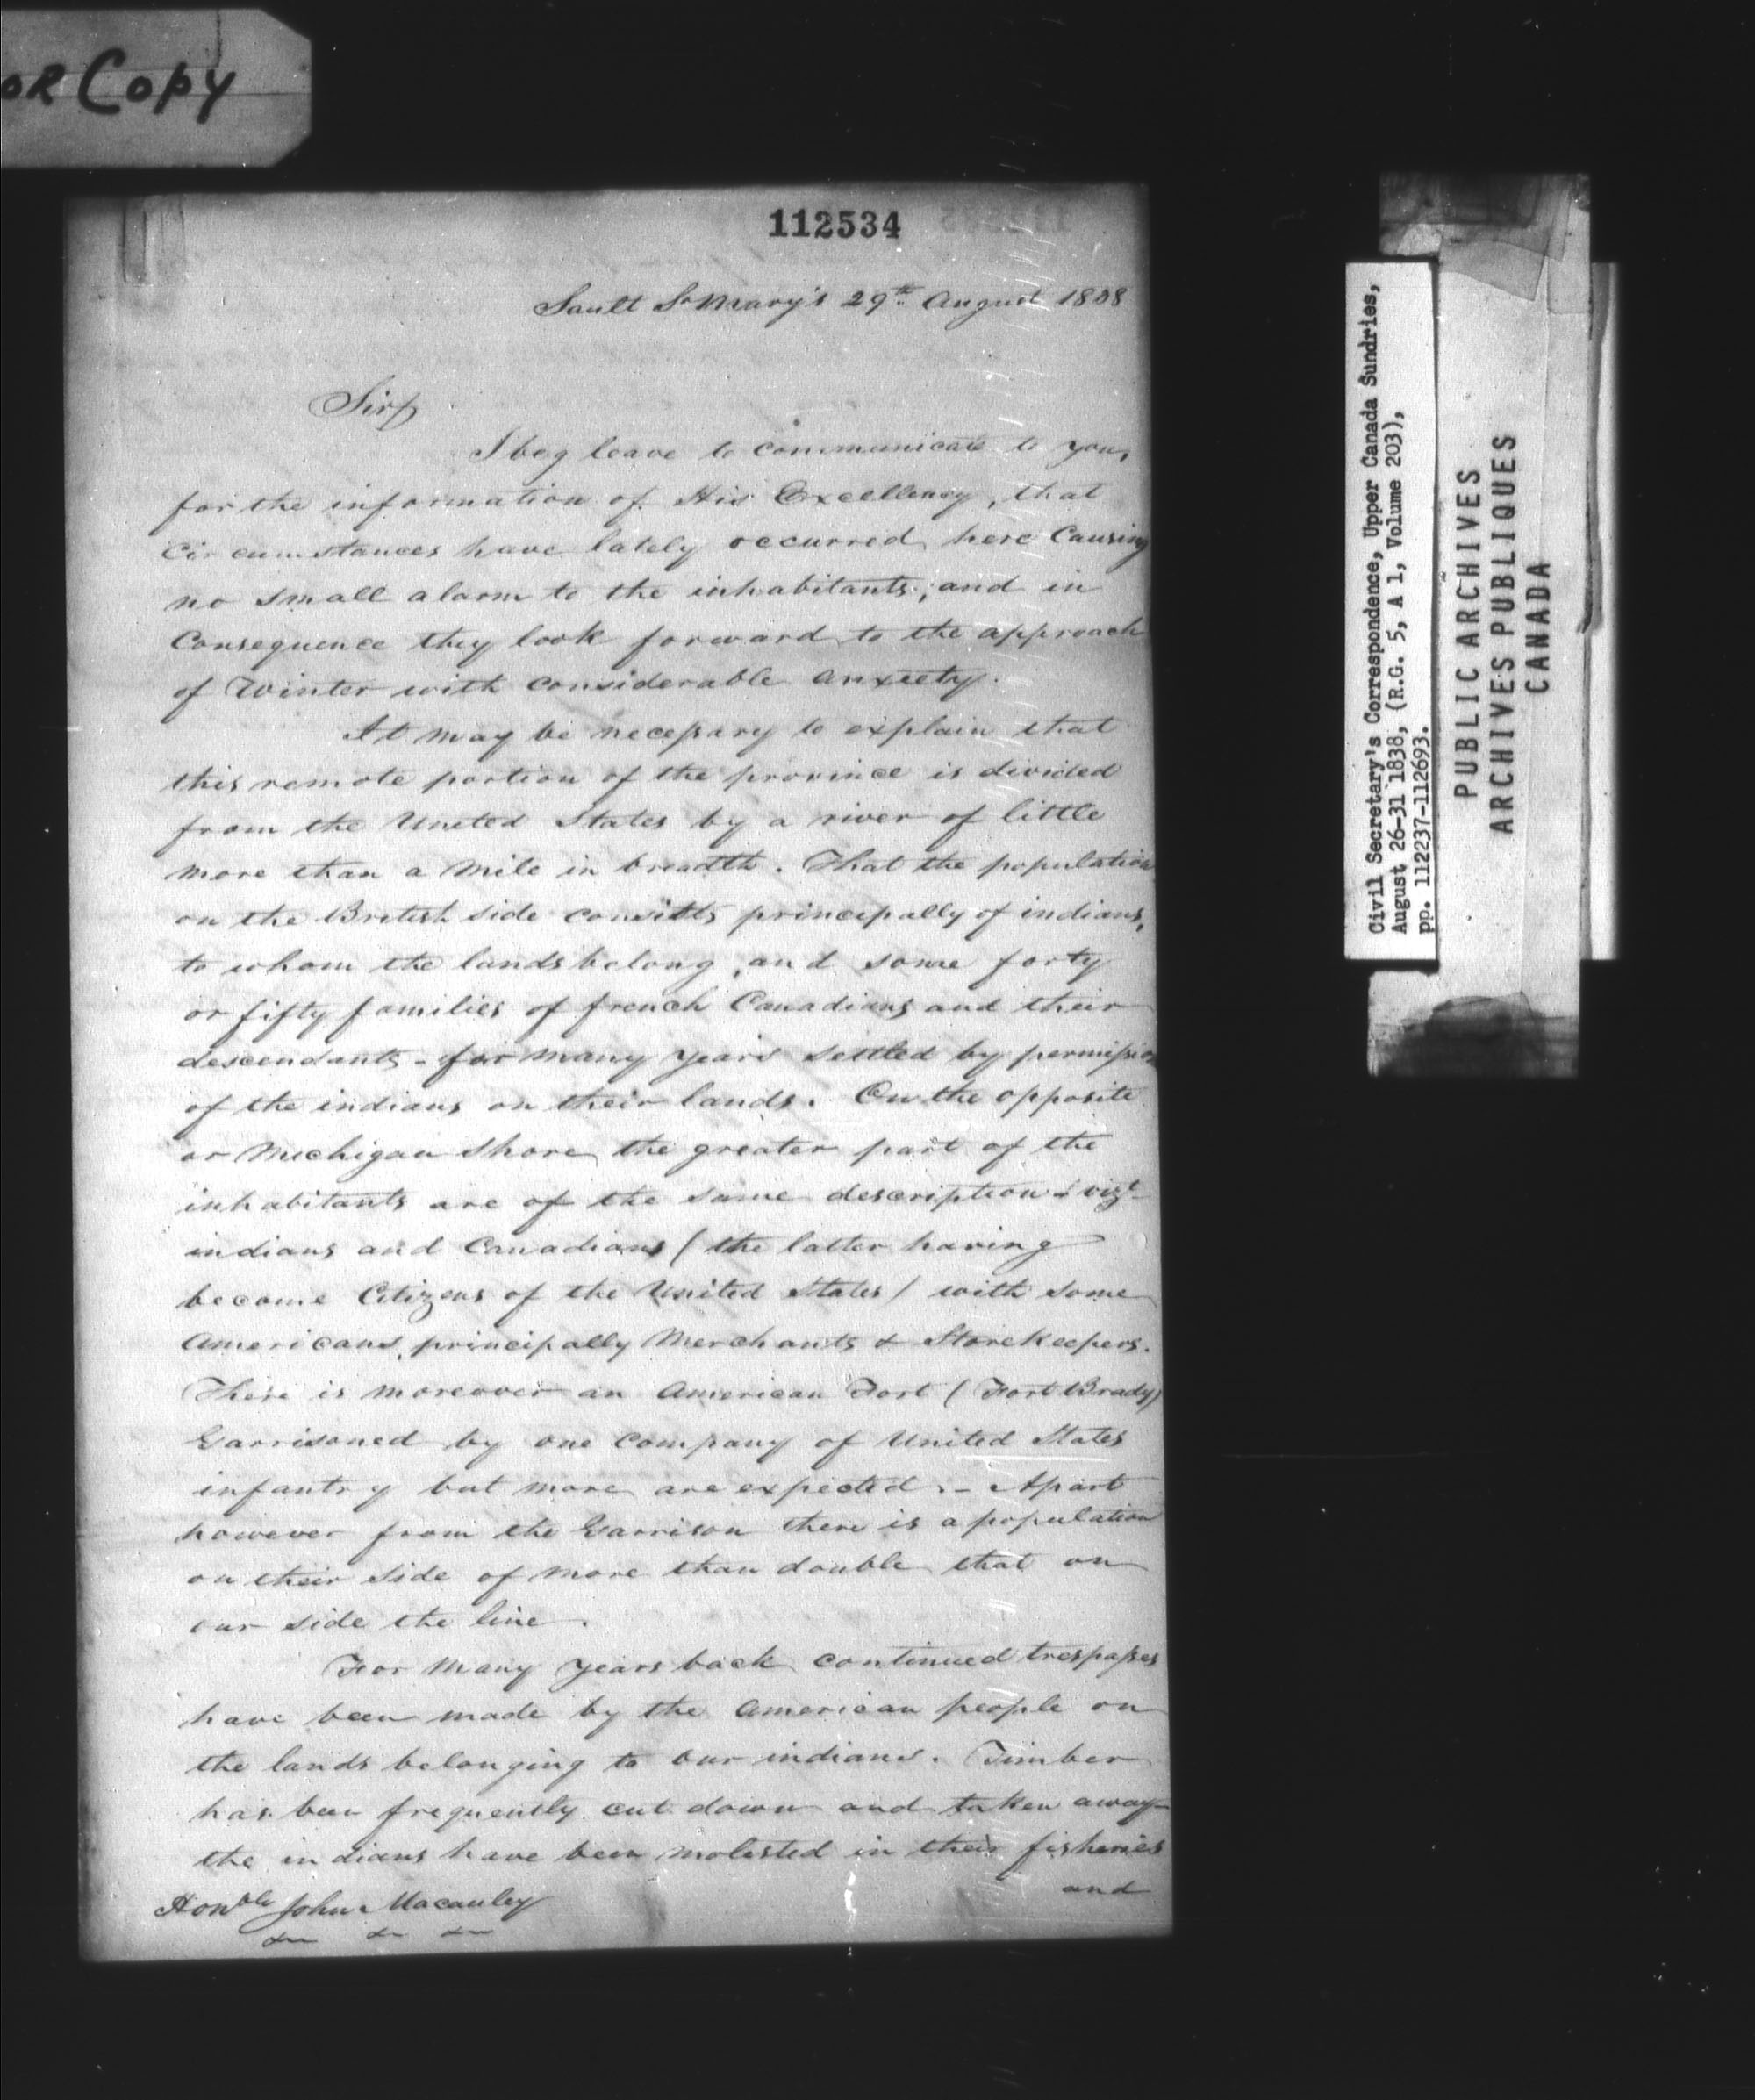 OR Copy
112534
Sault St Mary's 29th August 1838
Sir,
I beg leave to communicate to you,
for the information of His Excellency, that
Circumstances have lately occurred here Causing
no small alarm to the inhabitants; and in
Consequence they look forward to the approach
of Winter with considerable anxiety.
It may be necessary to explain that
this remote portion of the province is divided
from the United States by a river of little
more than a mile in breadth. That the population
on the British side consists principally of indians,
to whom the lands belong, and some forty
or fifty families of french Canadians and their
descendants - for many years settled by permission
of the indians on their lands. On the opposite
or Michigan Shore the greater part of the
inhabitants are of the same description - vizt
indians and Canadians (the latter having
become Citizens of the United States) with some
Americans, principally Merchants & Storekeepers.
There is moreover an American Fort (Fort Brady)
Garrisoned by one Company of United States
infantry but more are expected. - Apart
however from the Garrison there is a population
on their side of more than double that on
our side the line.
For many years back continued trespasses
have been made by the American people on
the lands belonging to our indians. Timber
has been frequently cut down and taken away
the indians have been molested in their fisheries
and
Honble John Macauley
&c &c &c
Civil Secretary's Correspondence, Upper Canada Sundries,
August 26-31 1838, (R.G. 5, A 1, Volume 203),
pp. 112237-112693.
PUBLIC ARCHIVES
ARCHIVES PUBLIQUES
CANADA